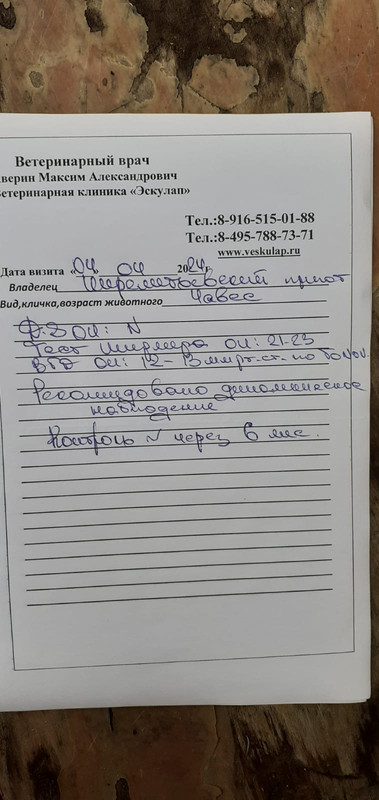 Ветеринарный врач
верин Максим Александрович
етеринарная клиника «Эскулап»
Тел.:8-916-515-01-88
Тел.:8-495-788-73-71
www.veskulap.ru
Дата визита 04 04 2024г.
Владелец Шереметьевский приют
Вид,кличка,возраст животного Чавес
Д-З OU: N
Тест Ширмера OU: 21-23
ВГД OU: 12-13 мм.рт.ст. по TonoV.
Рекомендовано динамическое
наблюдение
Контроль N через 6 мес.